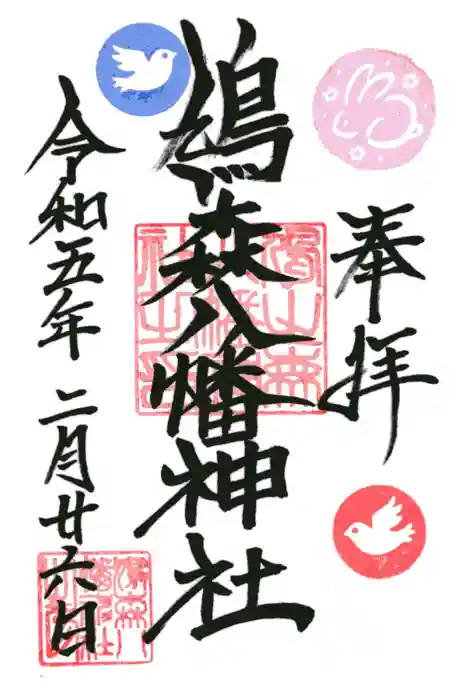 奉拝
鳩森八幡神社
令和五年二月廿六日